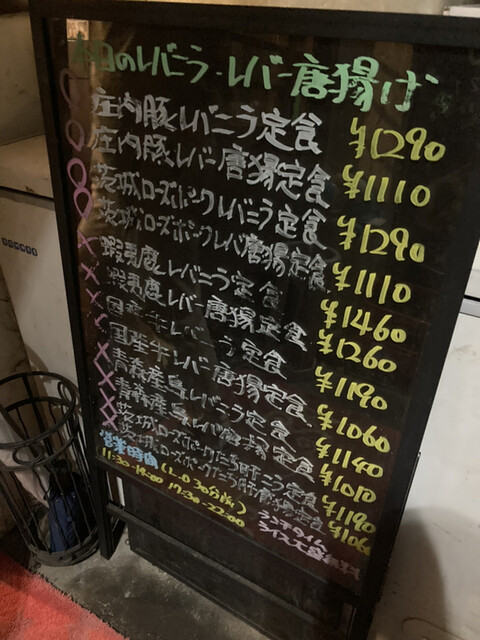 本日のレバニラ・レバー唐揚げ
○ 庄内豚レバニラ定食 ¥1290
○ 庄内豚レバー唐揚定食 ¥1110
○ 茨城ローズポークレバニラ定食 ¥1290
○ 茨城ローズポークレバ唐揚定食 ¥1110
× 蝦夷鹿レバニラ定食 ¥1460
× 蝦夷鹿レバー唐揚定食 ¥1260
× 国産牛レバニラ定食 ¥1190
× 国産牛レバー唐揚定食 ¥1060
× 青森産鳥レバニラ定食 ¥1140
× 青森産鳥レバ唐揚定食 ¥1010
× 茨城ローズポークたち肝ニラ定食 ¥1190
× 茨城ローズポークたち肝唐揚定食 ¥1060
営業時間
11:30-14:00 (L.O 30分前) 17:30-22:00
ランチタイム
ライス大盛無料